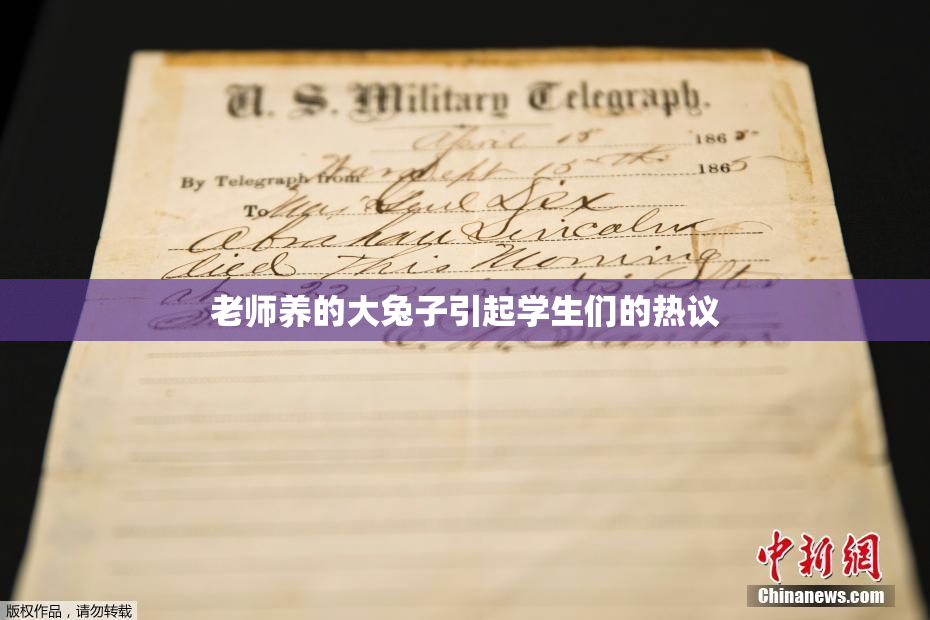 U. S. Military Telegraph.
April 15 1865
By Telegraph from War Dept 15th 1865
To Maj Genl Dix
Abraham Lincoln
died This Morning
at 22 minutes after
老师养的大兔子引起学生们的热议
E. M. Stanton
中新網
Chinanews.com
版权作品，请勿转载